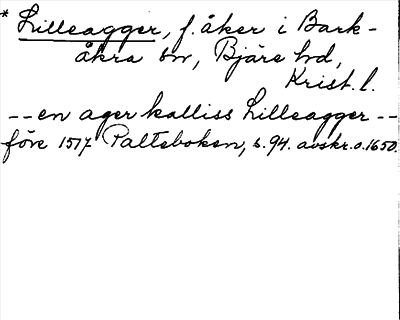 * Lilleagger, f. åker i Bark-
åkra sn, Bjäre hd,
Krist. l.
-- en ager kalliss Lilleagger --
före 1517 Palteboken, s. 94. avskr. o. 1650.